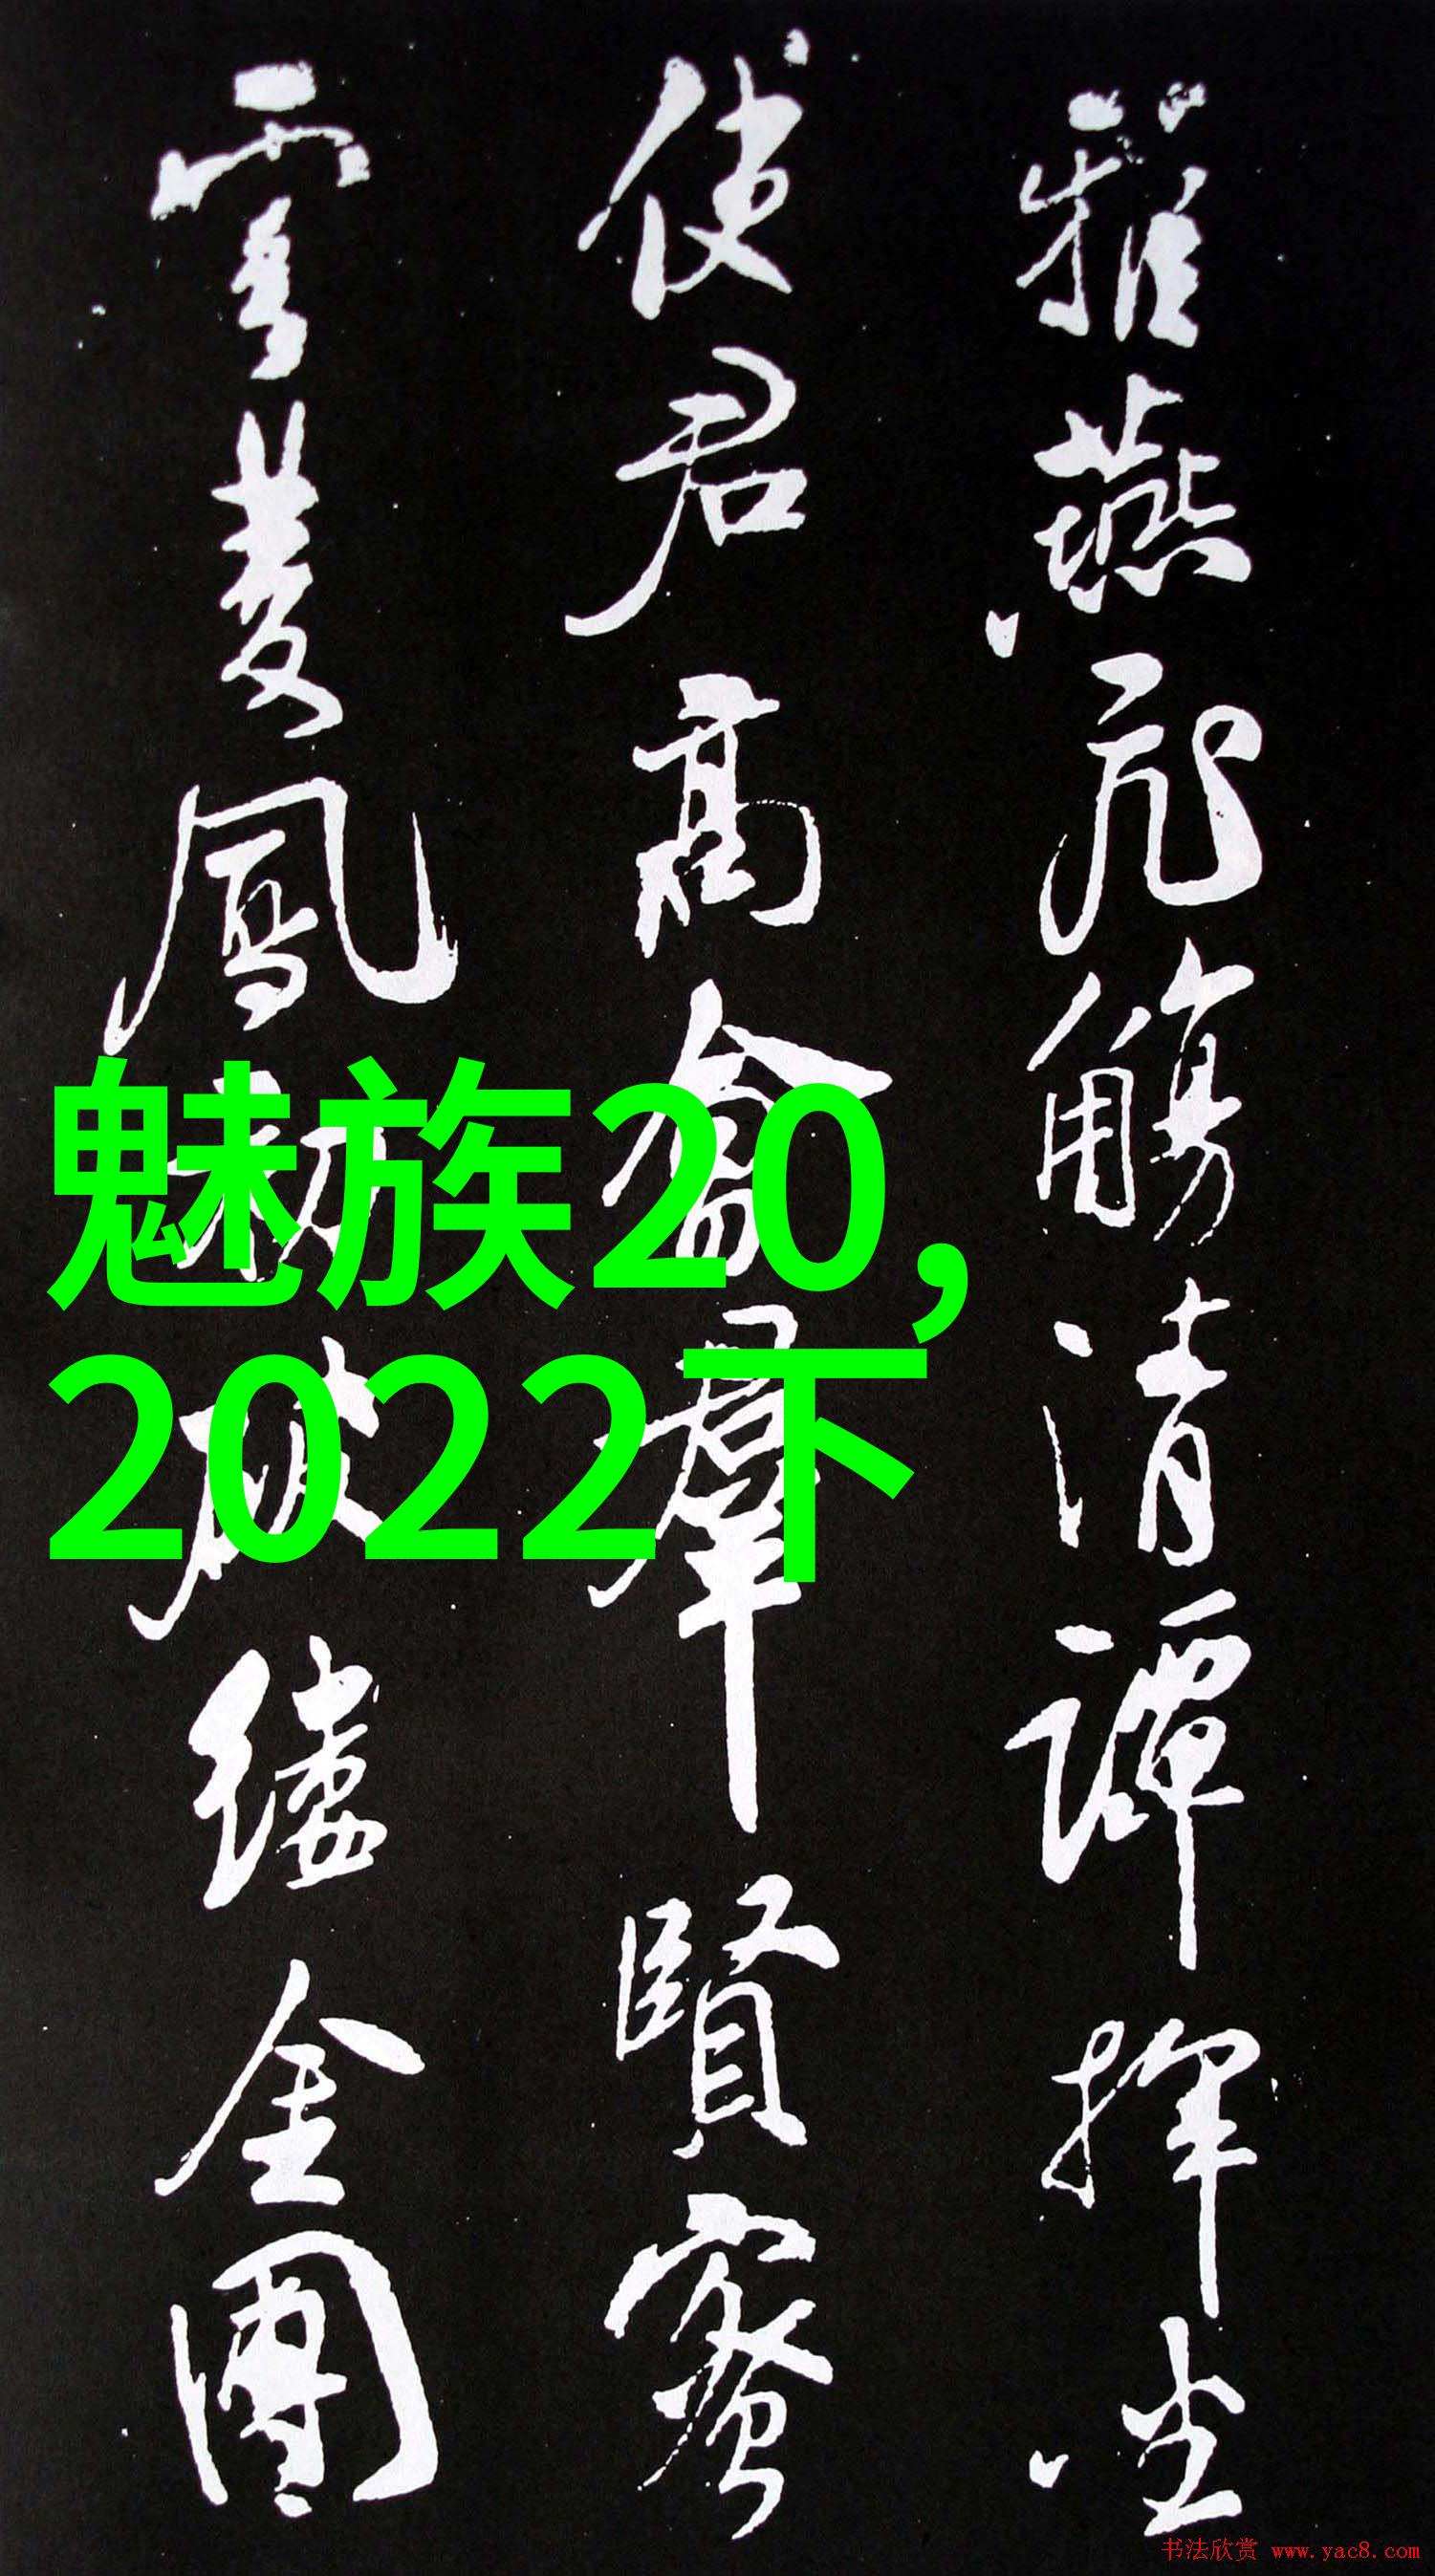 雅燕飛觴清譚揮坐
使君高會羣賢密
雲雙鳳初破縷金團
魅族20,
2022下
书法欣赏 www.yac8.com